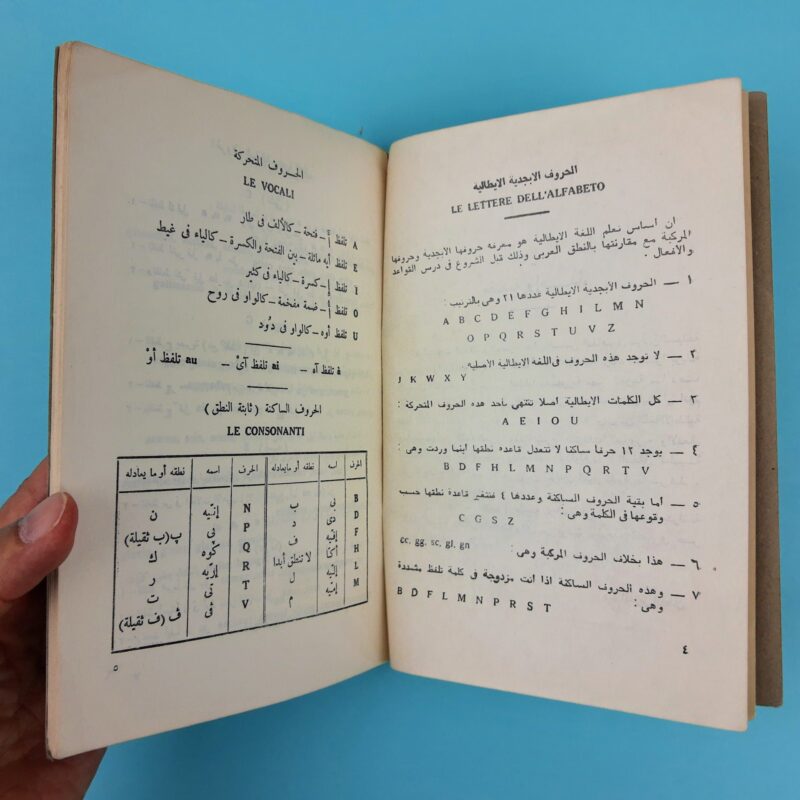 الحروف الابجدية الايطالية
LE LETTERE DELL'ALFABETO
ان أساس تعلم اللغة الايطالية هو معرفة حروفها الأبجدية وحروفها
المركبة مع مقارنتها بالنطق العربى وذلك قبل الشروع فى درس القواعد
والأفعال :
١ — الحروف الأبجدية الايطالية عددها ٢١ وهى بالترتيب :
A B C D E F G H I L M N
O P Q R S T U V Z
٢ — لا توجد هذه الحروف فى اللغة الايطالية الأصلية
J K W X Y
٣ — كل الكلمات الايطالية أصلا تنتهى بأحد هذه الحروف المتحركة :
A E I O U
٤ — يوجد ١٢ حرفا ساكنا لا تتعدل قاعدة نطقها أينما وردت وهى :
B D F H L M N P Q R T V
٥ — أما بقية الحروف الساكنة وعددها ٤ فتتغير قاعدة نطقها حسب
وقوعها فى الكلمة وهى :
C G S Z
٦ — هذا بخلاف الحروف المركبة وهى : cc, gg, sc, gl, gn
٧ — وهذه الحروف الساكنة اذا أتت مزدوجة فى كلمة تلفظ مشددة
وهى :
B D F L M N P R S T
٤
الحروف المتحركة
LE VOCALI
A تلفظ أَ — فتحة — كالألف فى طار
E تلفظ أيه مائلة — بين الفتحة والكسرة — كالياء فى غيط
I تلفظ إِ — كسرة — كالياء فى كثير
O تلفظ أُ — ضمة مفخمة — كالواو فى روح
U تلفظ أوه — كالواو فى دُود
à تلفظ آه — ai تلفظ آىْ — au تلفظ أوْ
الحروف الساكنة ( ثابتة النطق )
LE CONSONANTI
الحرف اسمه نطقه أو مايعادله الحرف اسمه نطقه أو ما يعادله
B بى ب N إنّيه ن
D دى د P پى پ (ب ثقيلة)
F إفّيه ف Q كُوه ك
H أكّا لا تنطق أبدا R إرّيه ر
L إلّيه ل T تى ت
M إمّيه م V ڤى ڤ (ف ثقيلة)
٥